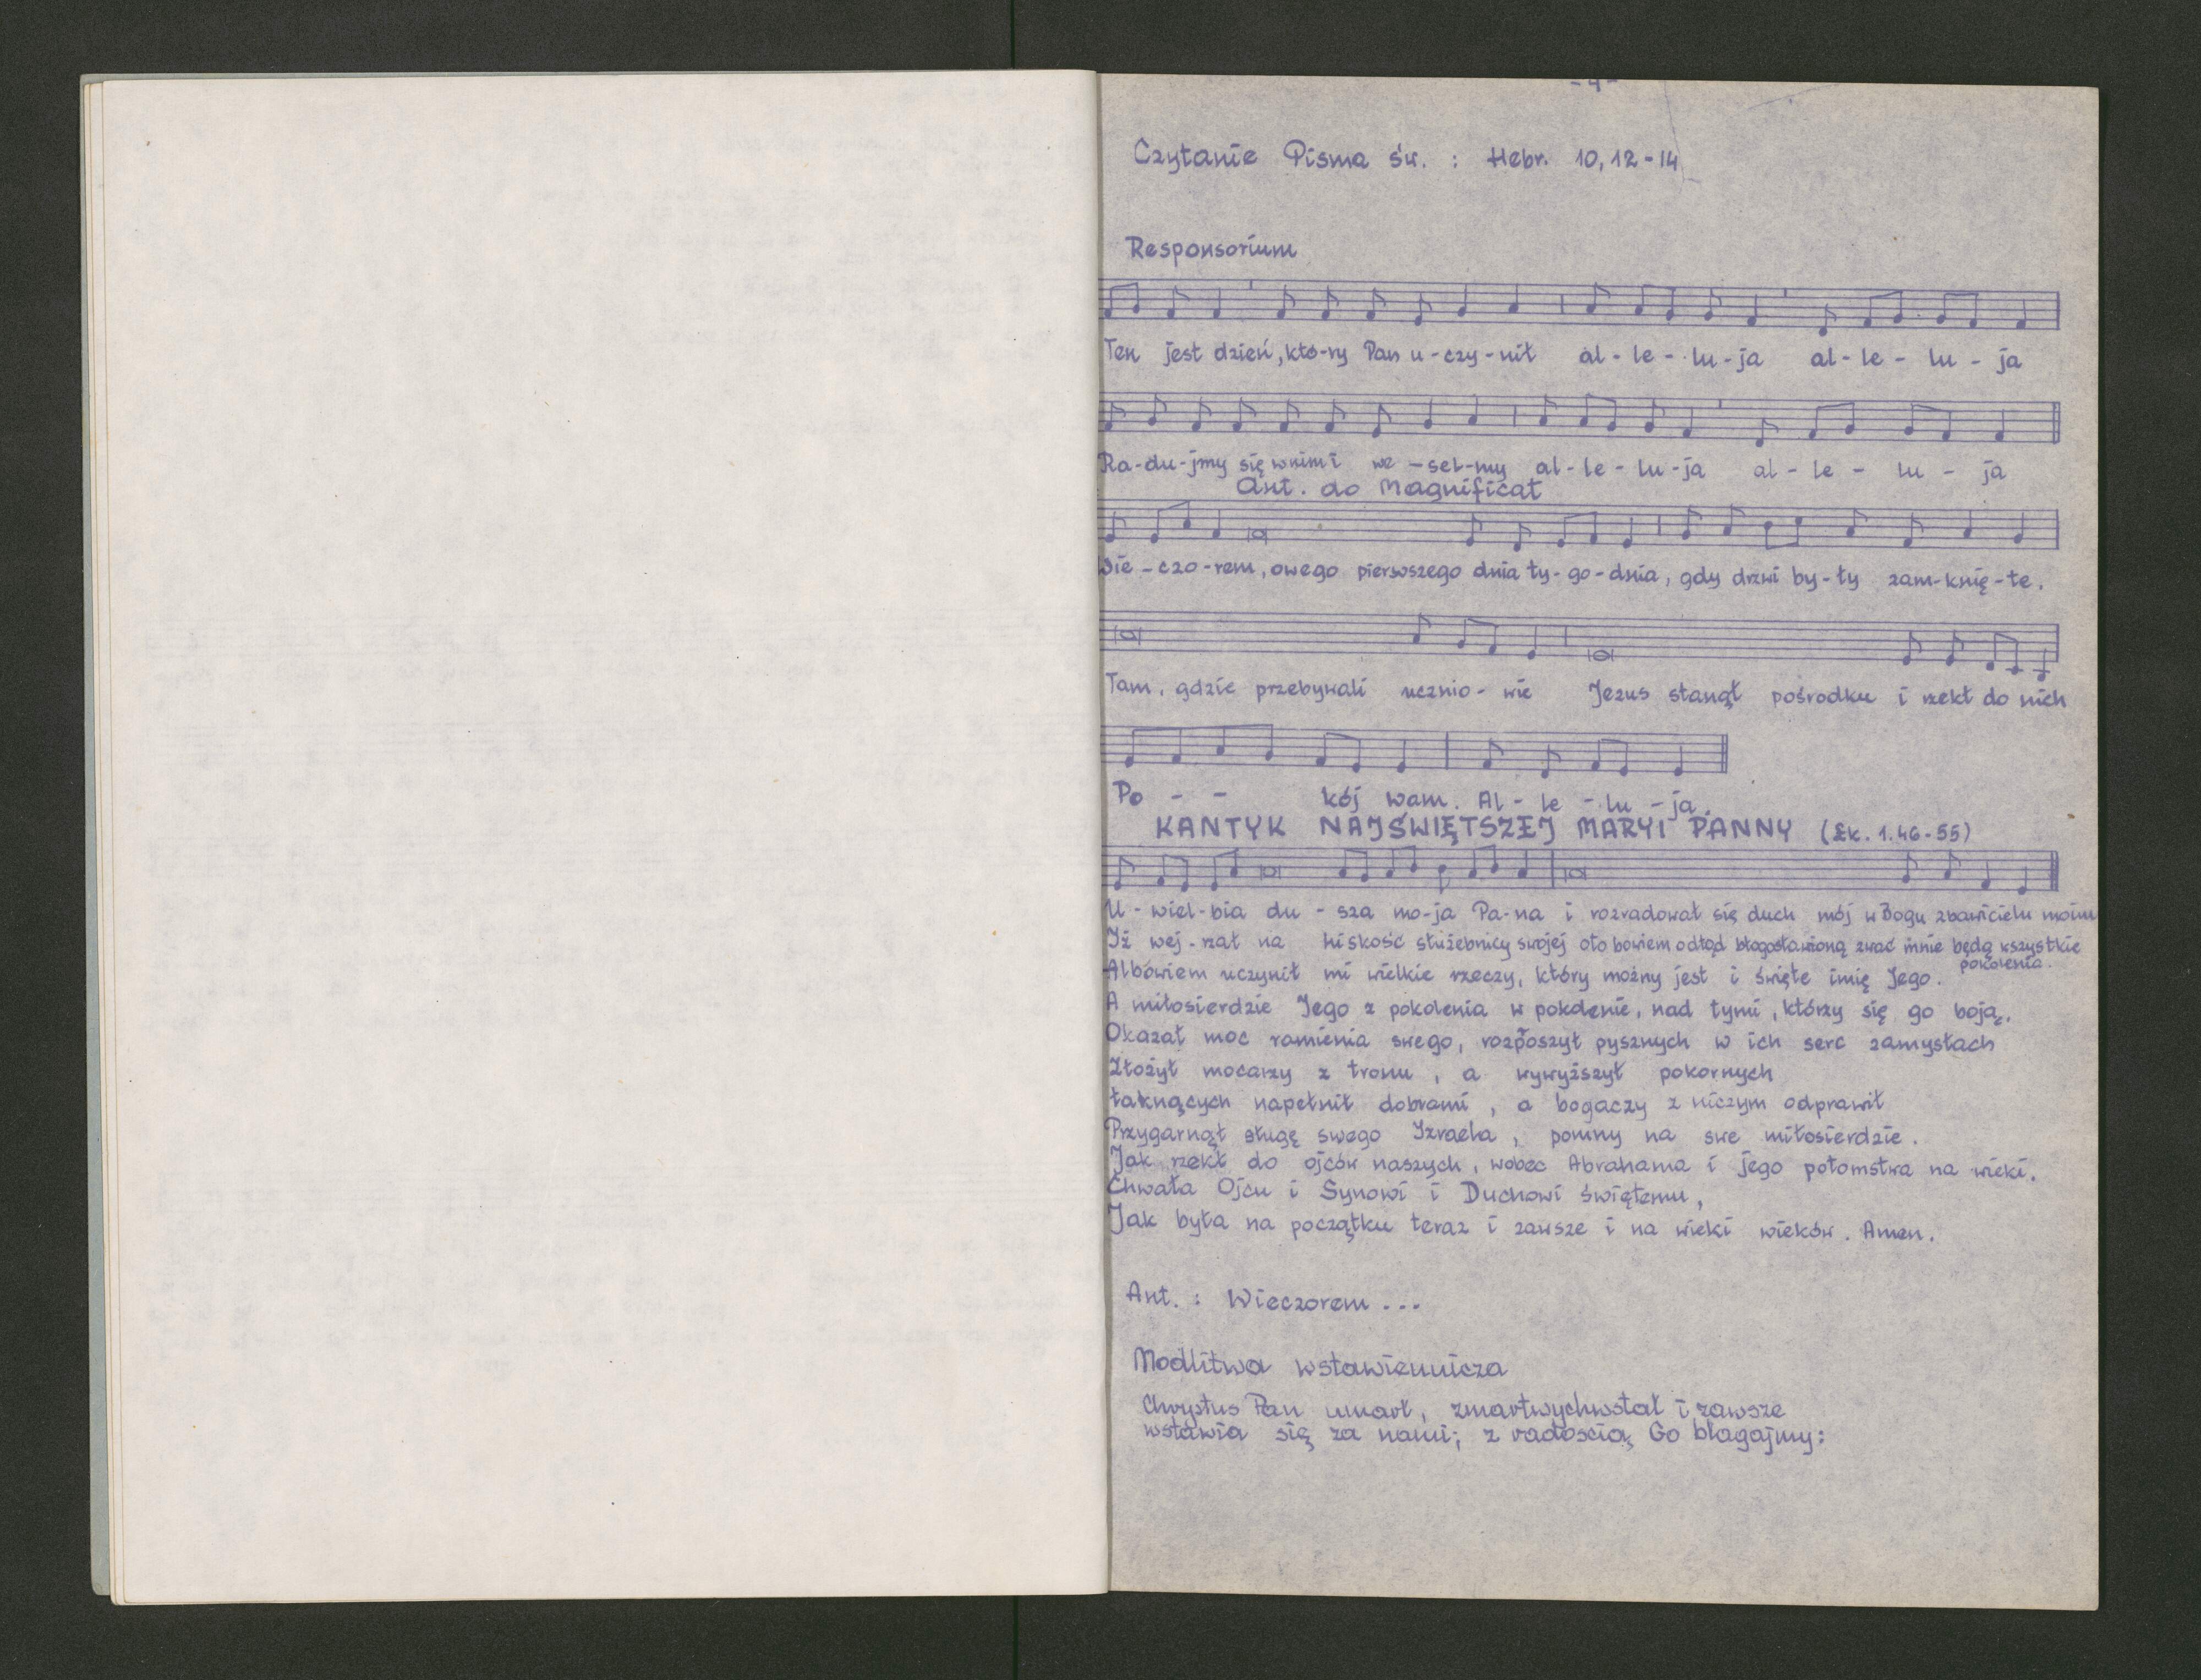 - 4 -
Czytanie Pisma św. : Hebr. 10, 12 - 14
Responsorium
Ten jest dzień, któ-ry Pan u-czy-nił al - le - lu - ja al - le - lu - ja
Ra-du-jmy się w nim i we - sel-my al - le - lu - ja al - le - lu - ja
Ant. do Magnificat
Wie - czo - rem, owego pierwszego dnia ty - go - dnia, gdy drzwi by - ły zam-knię-te.
Tam, gdzie przebywali ucznio - wie Jezus stanął pośrodku i rzekł do nich
Po - - kój wam. Al - le - lu - ja.
KANTYK NAJŚWIĘTSZEJ MARYI PANNY (Łk. 1.46-55)
U - wiel - bia du - sza mo-ja Pa-na i rozradował się duch mój w Bogu zbawicielu moim
Iż wej - rzał na niskość służebnicy swojej oto bowiem odtąd błogosławioną zwać mnie będą wszystkie
pokolenia.
Albowiem uczynił mi wielkie rzeczy, który możny jest i święte imię Jego.
A miłosierdzie Jego z pokolenia w pokolenie, nad tymi, którzy się go boją.
Okazał moc ramienia swego, rozposzył pysznych w ich serc zamysłach
Złożył mocarzy z tronu, a wywyższył pokornych
łaknących napełnił dobrami, a bogaczy z niczym odprawił
Przygarnął sługę swego Izraela, pomny na swe miłosierdzie.
Jak rzekł do ojców naszych, wobec Abrahama i jego potomstwa na wieki.
Chwała Ojcu i Synowi i Duchowi świętemu,
Jak była na początku teraz i zawsze i na wieki wieków. Amen.
Ant. : Wieczorem ...
Modlitwa wstawiennicza
Chrystus Pan umarł, zmartwychwstał i zawsze
wstawia się za nami; z radością Go błagajmy: